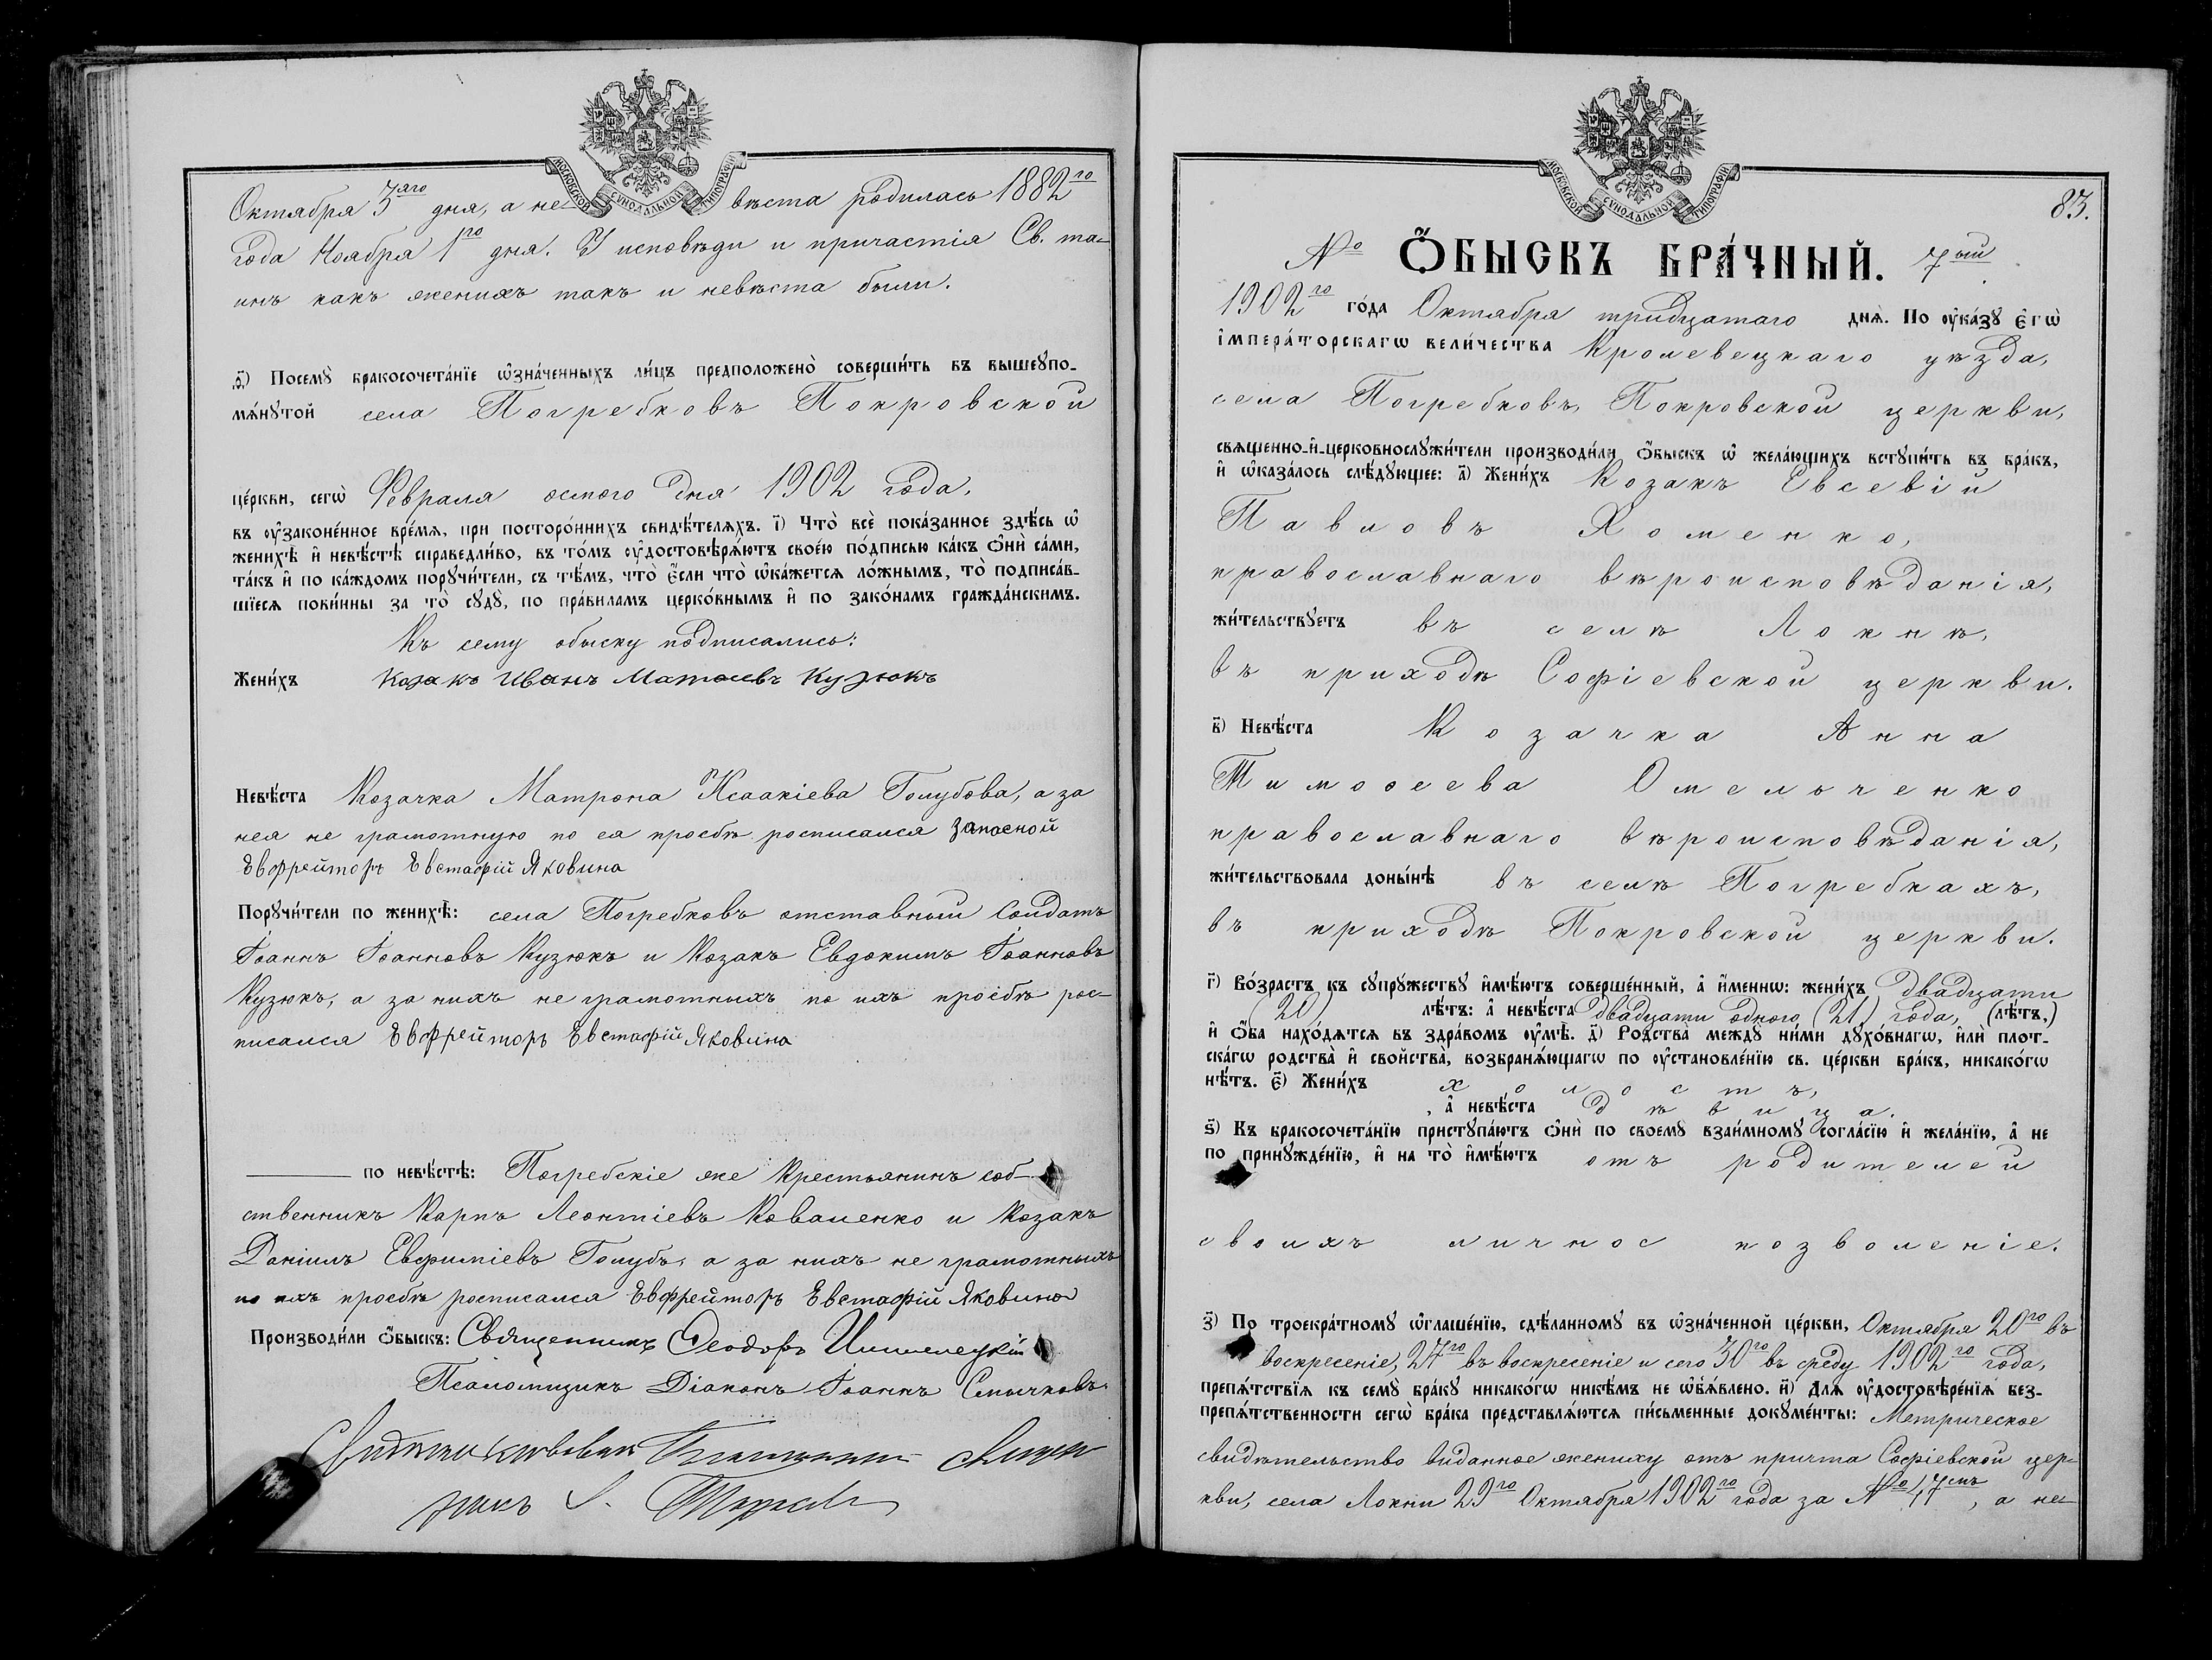 МОСКОВСКОЙ СѴНОДАЛЬНОЙ ТИПОГРАФІИ
Октября 3яго дня, а не- вѣста родилась 1882го
года Ноября 1го дня. У исповѣди и причастія Св. та-
инъ какъ женихъ такъ и невѣста были.
ѳ҃) Посемꙋ̀ бракосочета́нїе ѡ҆зна́ченныхъ ли́цъ предположено̀ соверши́ть въ вышеꙋпо-
мѧ́нꙋтой села Погребковъ Покровской
це́ркви, сегѡ̀ Февраля осмого дня 1902 года.
въ ᲂу҆законе́нное вре́мѧ, при посторо́ннихъ свидѣ́телѧхъ. і҃) Что̀ всѐ пока́занное здѣ́сь ѡ҆
женихѣ̀ и҆ невѣ́стѣ справедли́во, въ то́мъ ᲂу҆достовѣрѧ́ютъ свое́ю по́дписью ка́къ ѻ҆нѝ са́ми,
та́къ и҆ по ка́ждомъ порꙋчи́тели, съ тѣ́мъ, что̀ є҆́сли что̀ ѡ҆ка́жетсѧ ло́жнымъ, то̀ подписа́в-
шїесѧ пови́нны за то̀ сꙋдꙋ̀, по пра́виламъ церко́внымъ и҆ по зако́намъ гражда́нскимъ.
Къ сему обыску подписались:
Жени́хъ козакъ Иванъ Матѳиевъ Кузюкъ
Невѣ́ста Козачка Матрона Исаакіева Голубова, а за
нея не грамотную по ея просбѣ росписался запасной
Ефрейторъ Евстафій Яковина
Порꙋчи́тели по женихѣ̀: села Погребковъ отставный Солдатъ
Іоаннъ Іоанновъ Кузюкъ и Козакъ Евдокимъ Іоанновъ
Кузюкъ, а за нихъ не грамотныхъ по ихъ просбѣ рос-
писался Ефрейторъ Евстафій Яковина
по невѣ́стѣ: Погребскіе же Крестьянинъ соб-
ственникъ Карпъ Леонтіевъ Коваленко и Козакъ
Даніилъ Евфиміевъ Голубъ, а за нихъ не грамотныхъ
по ихъ просбѣ росписался Ефрейторъ Евстафій Яковина
Производи́ли ѻ҆́быскъ: Священникъ Ѳеодоръ
Псаломщикъ Діаконъ Іоаннъ Смычковъ.
83.
№ Ѻ҆́БЫСКЪ БРА́ЧНЫЙ. 7ый
1902го го́да Октября тридцатаго днѧ̀. По ᲂу҆ка́зꙋ є҆гѡ̀
і҆мпера́торскагѡ вели́чества Кролевецкаго уѣзда,
села Погребковъ, Покровской церкви,
свѧщенно-и҆-церковнослꙋжи́тели производи́ли ѻ҆́быскъ ѡ҆ жела́ющихъ встꙋпи́ть въ бра́къ,
и҆ ѡ҆каза́лось слѣ́дꙋющее: а҃) Жени́хъ Козакъ Евсевій
Павловъ Хоменко,
православнаго вѣроисповѣданія,
жи́тельствꙋетъ въ селѣ Локнѣ,
въ приходѣ Софіевской церкви.
в҃) Невѣ́ста Козачка Анна
Тимоѳеева Омельченко
православнаго вѣроисповѣданія,
жи́тельствовала доны́нѣ въ селѣ Погребкахъ,
въ приходѣ Покровской церкви.
г҃) Во́зрастъ къ сꙋпрꙋ́жествꙋ и҆мѣ́ютъ соверше́нный, а҆̀ и҆́меннѡ: жени́хъ двадцати
(20) лѣ́тъ: а҆̀ невѣ́ста двадцати одного (21) года, (лѣ́тъ,)
и҆ ѻ҆́ба нахо́дѧтсѧ въ здра́вомъ ᲂу҆мѣ̀. д҃) Родства̀ междꙋ̀ ни́ми дꙋхо́внагѡ, и҆лѝ плот-
ска́гѡ родства̀ и҆ свойства̀, возбранѧ́ющагѡ по ᲂу҆становле́нїю св. це́ркви бра́къ, никако́гѡ
нѣ́тъ. є҃) Жени́хъ холостъ,
, а҆̀ невѣ́ста дѣвица.
ѕ҃) Къ бракосочета́нїю пристꙋпа́ютъ ѻ҆нѝ по своемꙋ̀ взаи́мномꙋ согла́сїю и҆ жела́нїю, а҆̀ не
по принꙋжде́нїю, и҆ на то̀ и҆мѣ́ютъ отъ родителей
своихъ личное позволеніе.
з҃) По троекра́тномꙋ ѡ҆глаше́нїю, сдѣ́ланномꙋ въ ѡ҆зна́ченной це́ркви, Октября 20го въ
воскресеніе, 27го въ воскресеніе и сего 30го въ среду 1902го года,
препѧ́тствїѧ къ семꙋ̀ бра́кꙋ никако́гѡ никѣ́мъ не ѡ҆б̾ѧ́влено. и҃) Длѧ̀ ᲂу҆достовѣре́нїѧ без-
препѧ́тственности сегѡ̀ бра́ка представлѧ́ютсѧ пи́сьменные докꙋме́нты: Метрическое
свидѣтельство виданное жениху отъ причта Софіевской цер-
кви, села Локни 29го Октября 1902го года за № 17мъ, а не-
МОСКОВСКОЙ СѴНОДАЛЬНОЙ ТИПОГРАФІИ